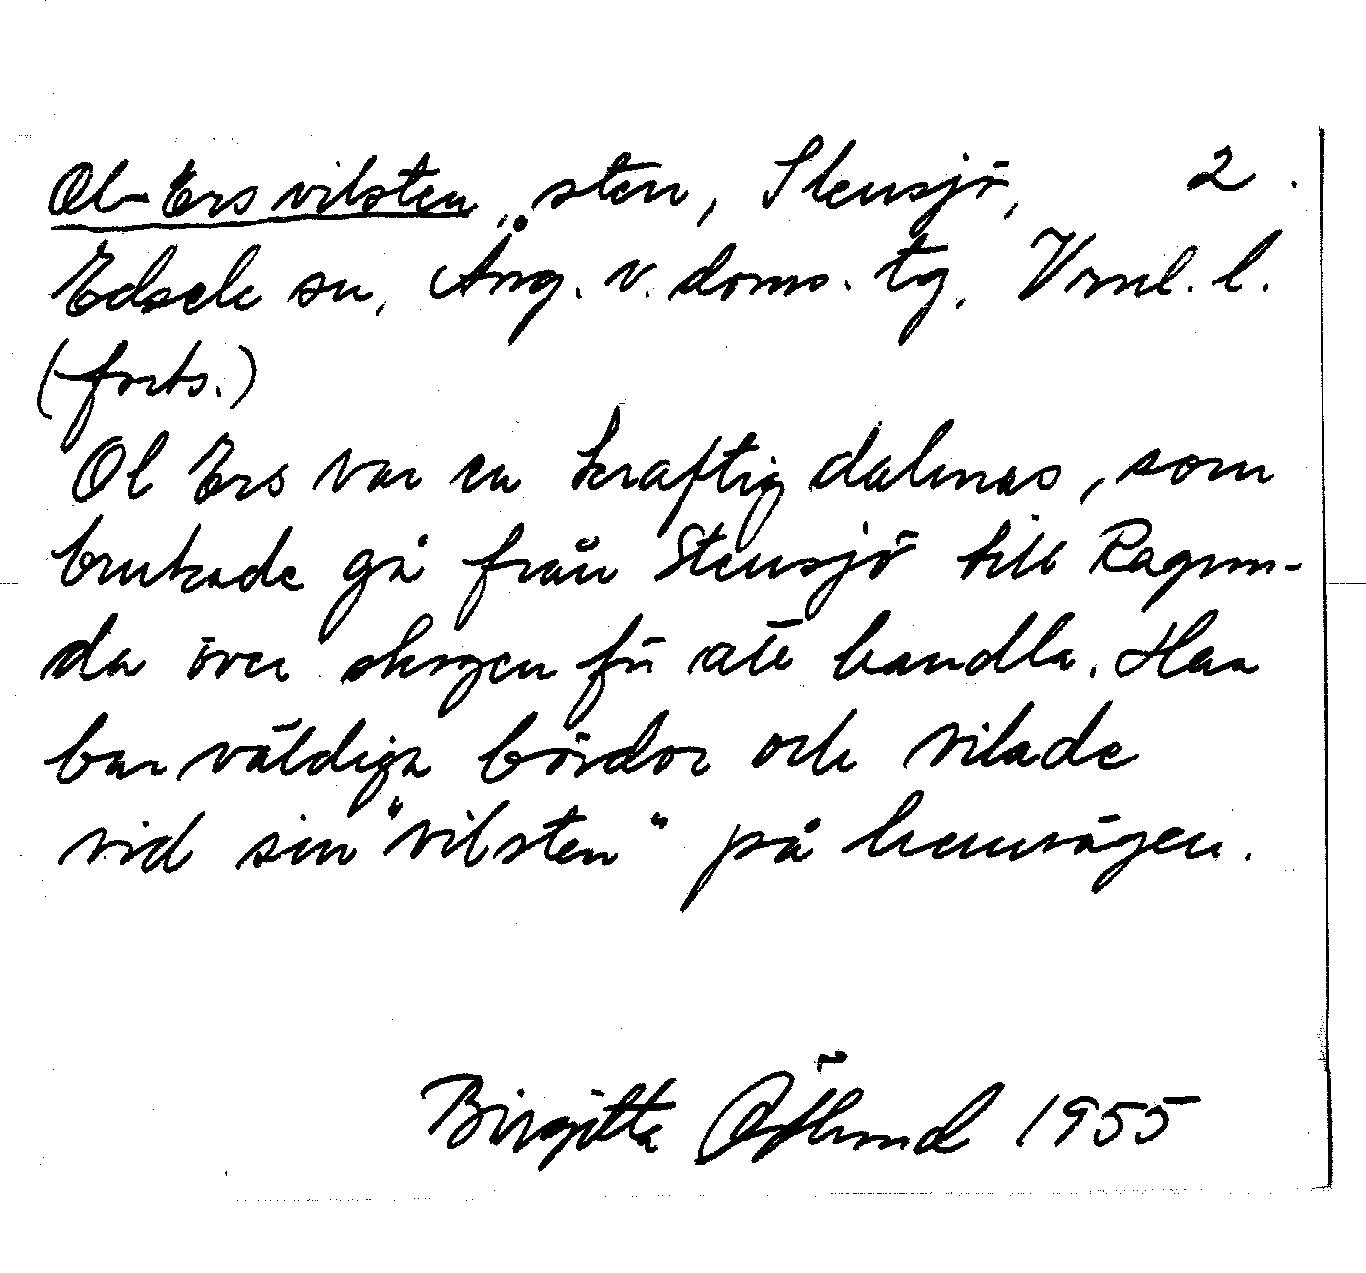 Ol-Ers vilsten, sten, Stensjö, 2.
Edsele sn, Ång. v. doms. tg, Vrml. l.
(forts.)
Ol Ers var en kraftig dalmas, som
brukade gå från Stensjö till Ragun-
da över skogen för att handla. Han
bar väldiga bördor och vilade
vid sin "vilsten" på hemvägen.
Birgitta 1955